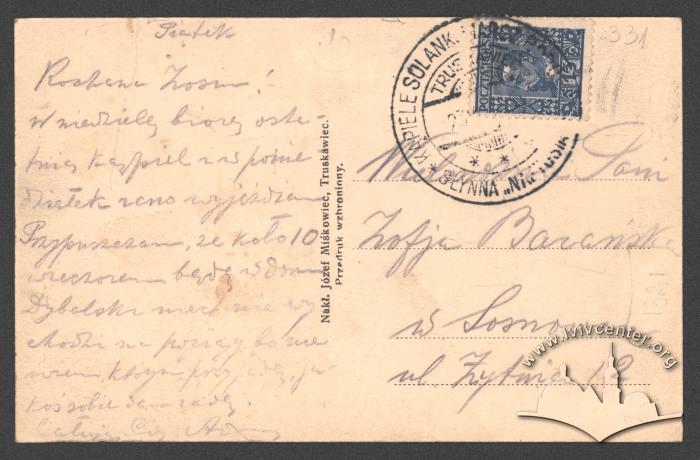 Piątek
Kochana Zosiu!
W niedzielę biorę osta-
tnią kąpiel i w ponie
działek rano wyjeżdżam
Przypuszczam, że koło 10
wieczorem będę w domu
Dybalski niech nie wy
chodzi na pociąg bo nie
wiem, którym przyjadę, ja
koś sobie dam radę.
Całuję Cię
Nakł. Józef Miśkowiec, Truskawiec.
Przedruk wzbroniony.
KĄPIELE SOLANK
TRUS
* SŁYNNA „NAFTUSIA
POCZTA
331
Pani
Zofja Barańska
w Sosno
ul Żytnia 12
331
www.lvivcenter.org